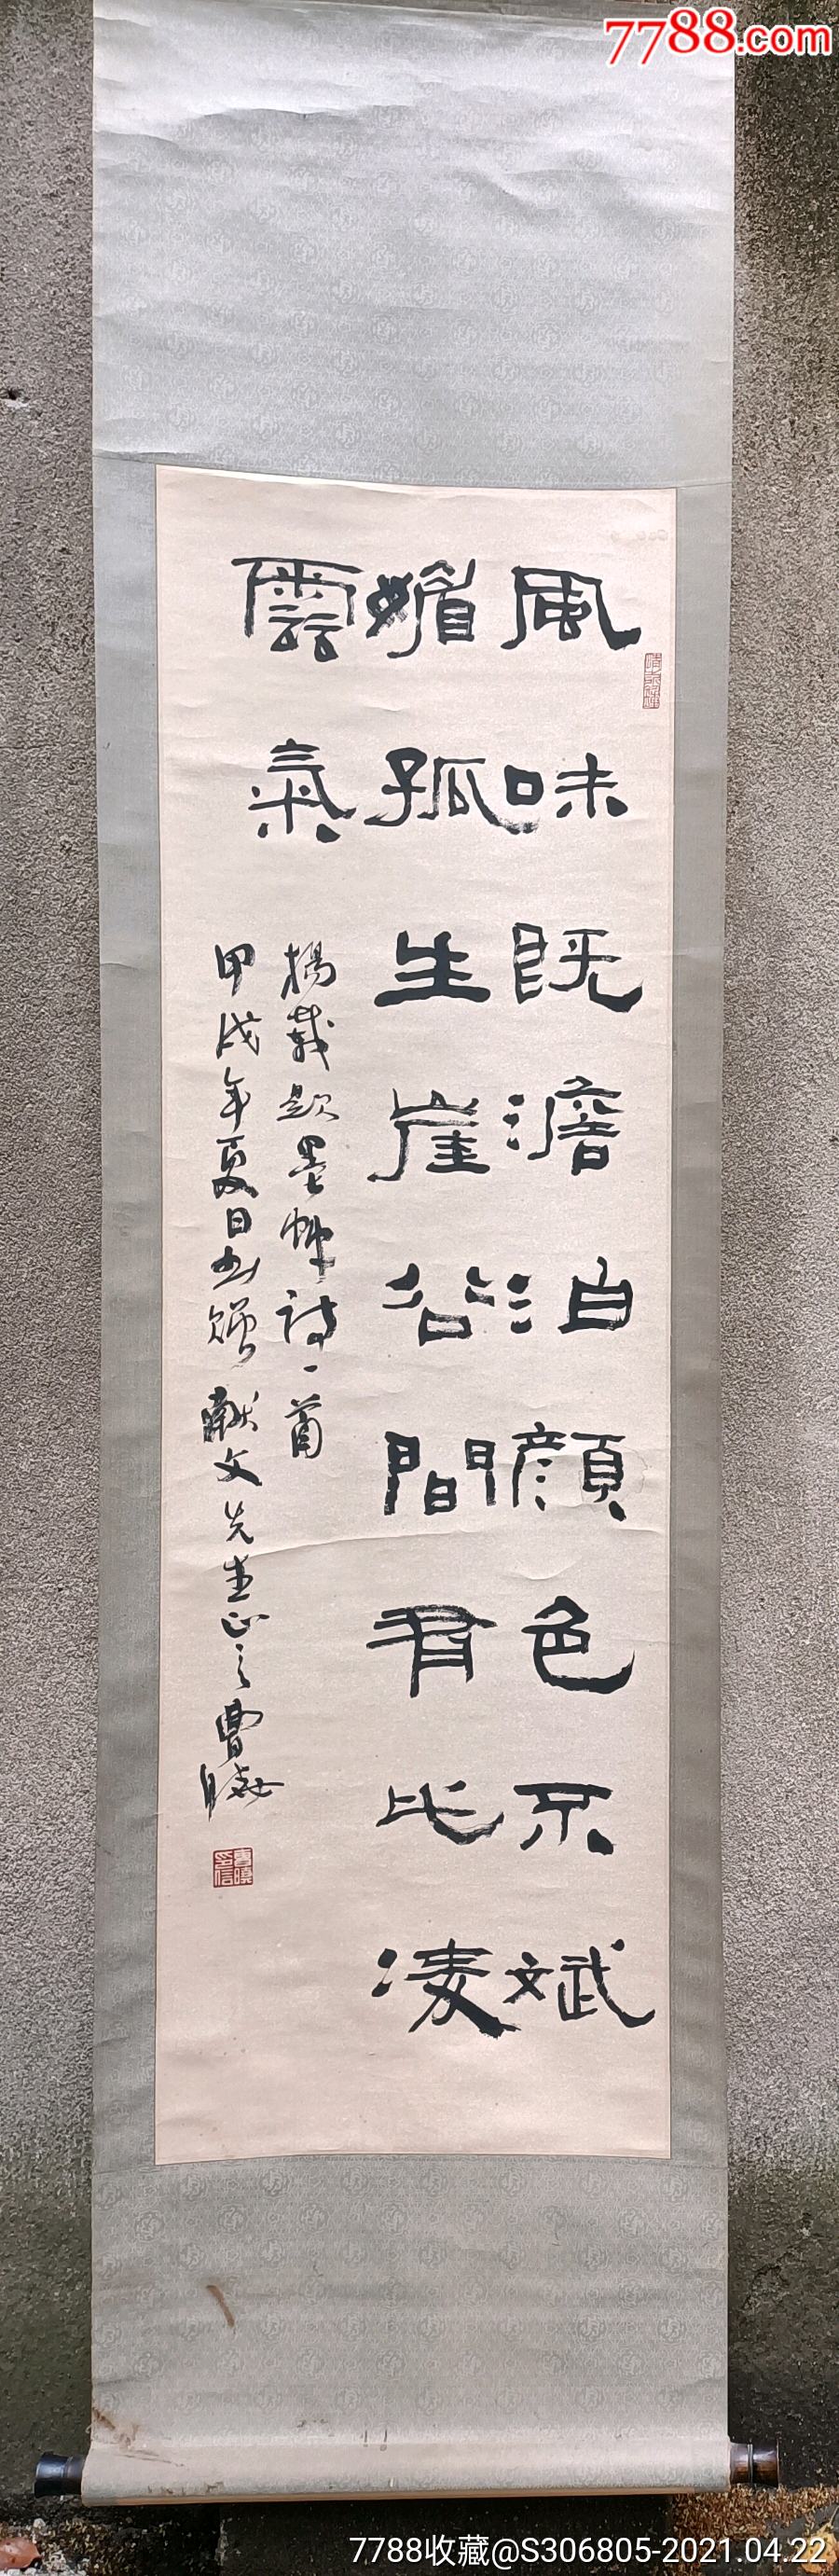 7788.com
風味既澹泊顏色不斌
媚孤生崖谷間有此凌
雲氣
楊載題墨竹詩一首
甲戌年夏日書贈 献文先生正之 曹曉
曹曉印信
7788收藏@S306805-2021.04.22